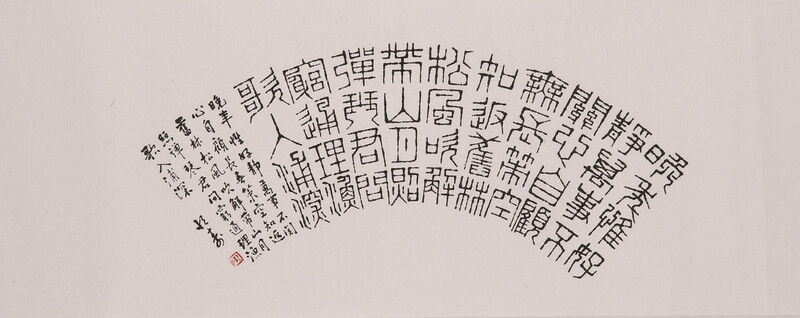 晚年惟好
靜萬事不
關心自顧
無長策空
知返舊林
松風吹解
帶山月照
彈琴君問
窮通理漁
歌入浦深
晚年惟好靜萬事不關
心自顧無長策空知返
舊林松風吹解帶山月
照彈琴君問窮通理漁
歌入浦深